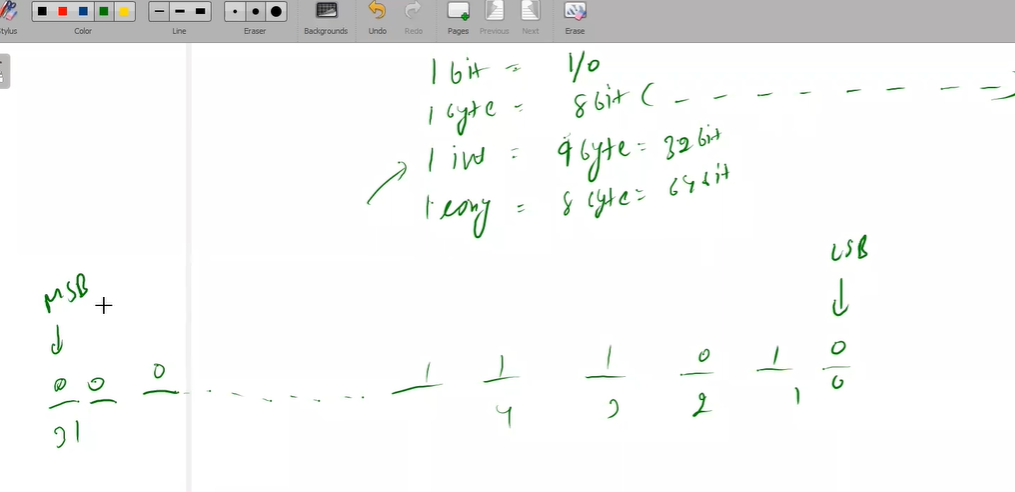 Stylus
Color Line Eraser Backgrounds Undo Redo Pages Previous Next Erase
1 bit = 1/0
1 byte = 8 bit ( - - - - - - - )
1 int = 4 byte = 32 bit
1 long = 8 byte = 64 bit
MSB LSB
0 0 0 . . . . . . 1 1 1 0 1 0
31 4 3 2 1 0